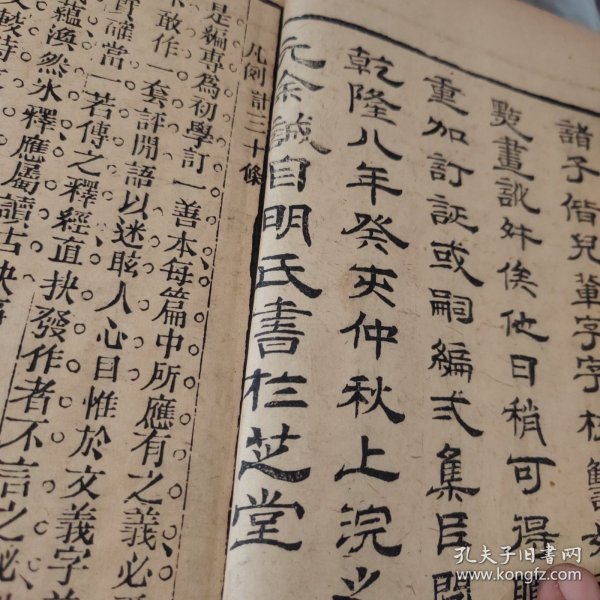 諸子偕兒輩字字校讐
點畫訛舛俟他日稍可得
重加訂証或嗣編弍集臣問
乾隆八年癸亥仲秋上浣之
元余誠自明氏書於芝堂
凡例計三十條
是編專為初學訂一善本每篇中所應有之義必
不敢作一套評閒語以迷眩人心目惟於文義字
實確當一若傳之釋經直抉發作者不言之必
蘊渙然氷釋應屬讀古
孔夫子旧书网
www.kongfz.com